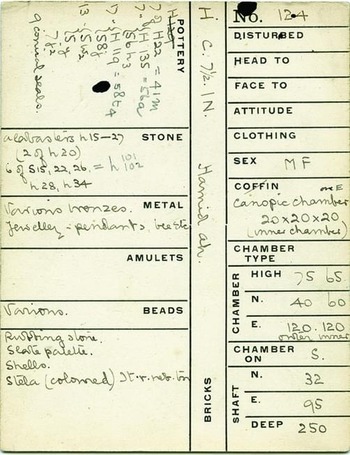 POTTERY
H22 = 41m
H135 = 56a
16h3
H119 = 58t4
158d
15h2
15d
7½
9 conical seals.
alabasters h15-27 STONE
(2 of h20)
6 of S15,22,26 = h 101
102
h28, h34
Various bronzes. METAL
Jewellery - pendants, bee etc
AMULETS
Various. BEADS
Rubbing stone.
Slate palette.
Shells.
Stela (coloured)
H. C. 7½. IN. Hamid ah.
BRICKS
No. 124
DISTURBED
HEAD TO
FACE TO
ATTITUDE
CLOTHING
SEX MF
COFFIN on E
Canopic chamber
20x20x20
(inner chamber)
CHAMBER
TYPE
CHAMBER
HIGH 75 65
N. 40 60
E. 120.120
outer inner
CHAMBER
ON S.
SHAFT
N. 32
E. 95
DEEP 250